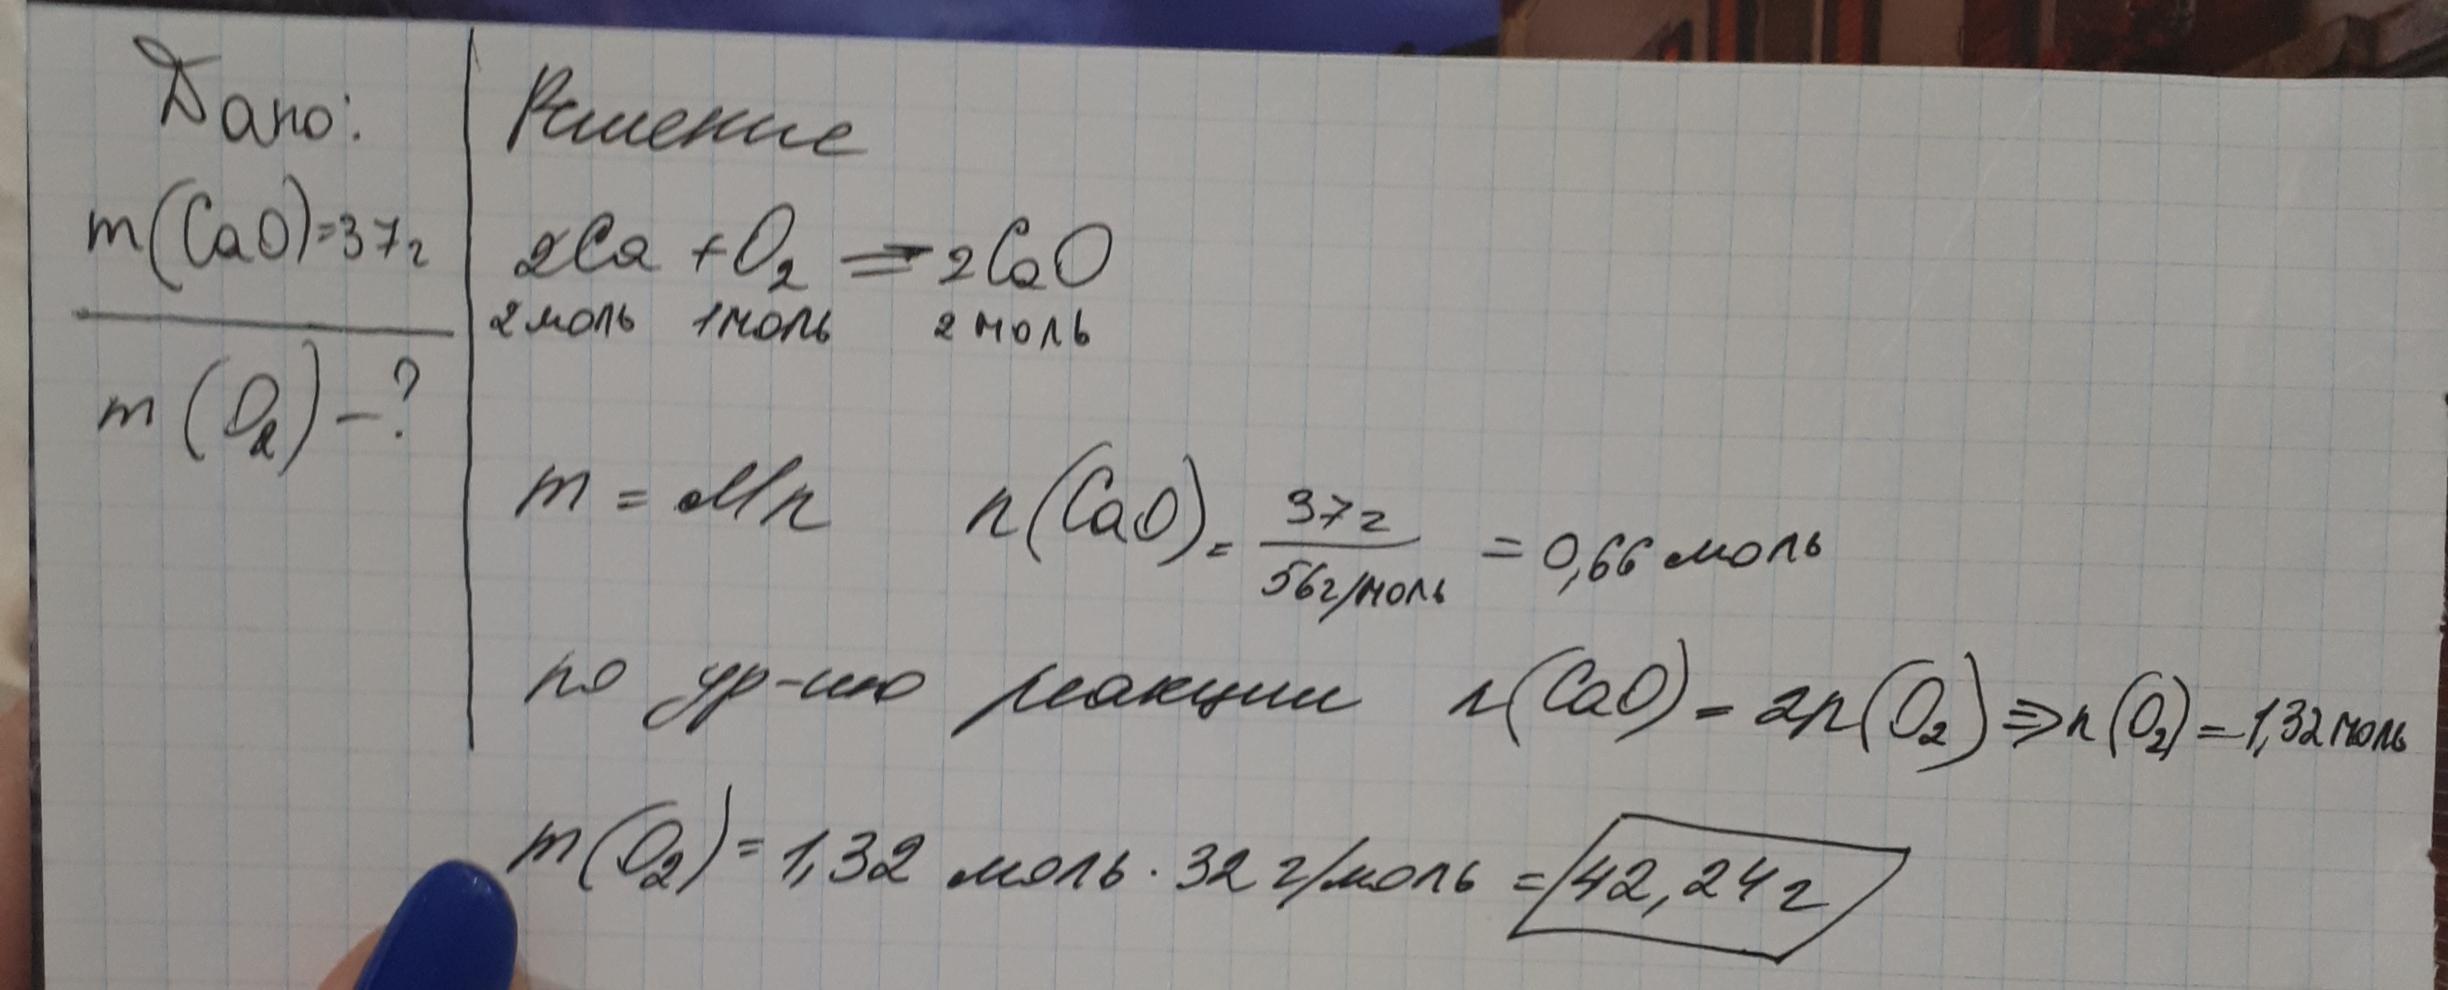 Дано:
m(CaO)=37г
m(O₂)-?
Решение
2Ca + O₂ = 2CaO
2моль 1моль 2 моль
m = Mn n(CaO) = 37г / 56г/моль = 0,66 моль
по ур-ию реакции n(CaO) = 2n(O₂) ⇒ n(O₂) = 1,32 моль
m(O₂) = 1,32 моль · 32 г/моль = 42,24г